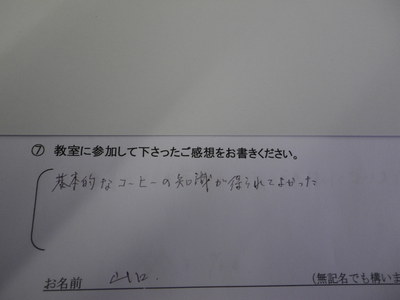 ⑦ 教室に参加して下さったご感想をお書きください。
基本的なコーヒーの知識が得られてよかった
お名前 山口. (無記名でも構いま